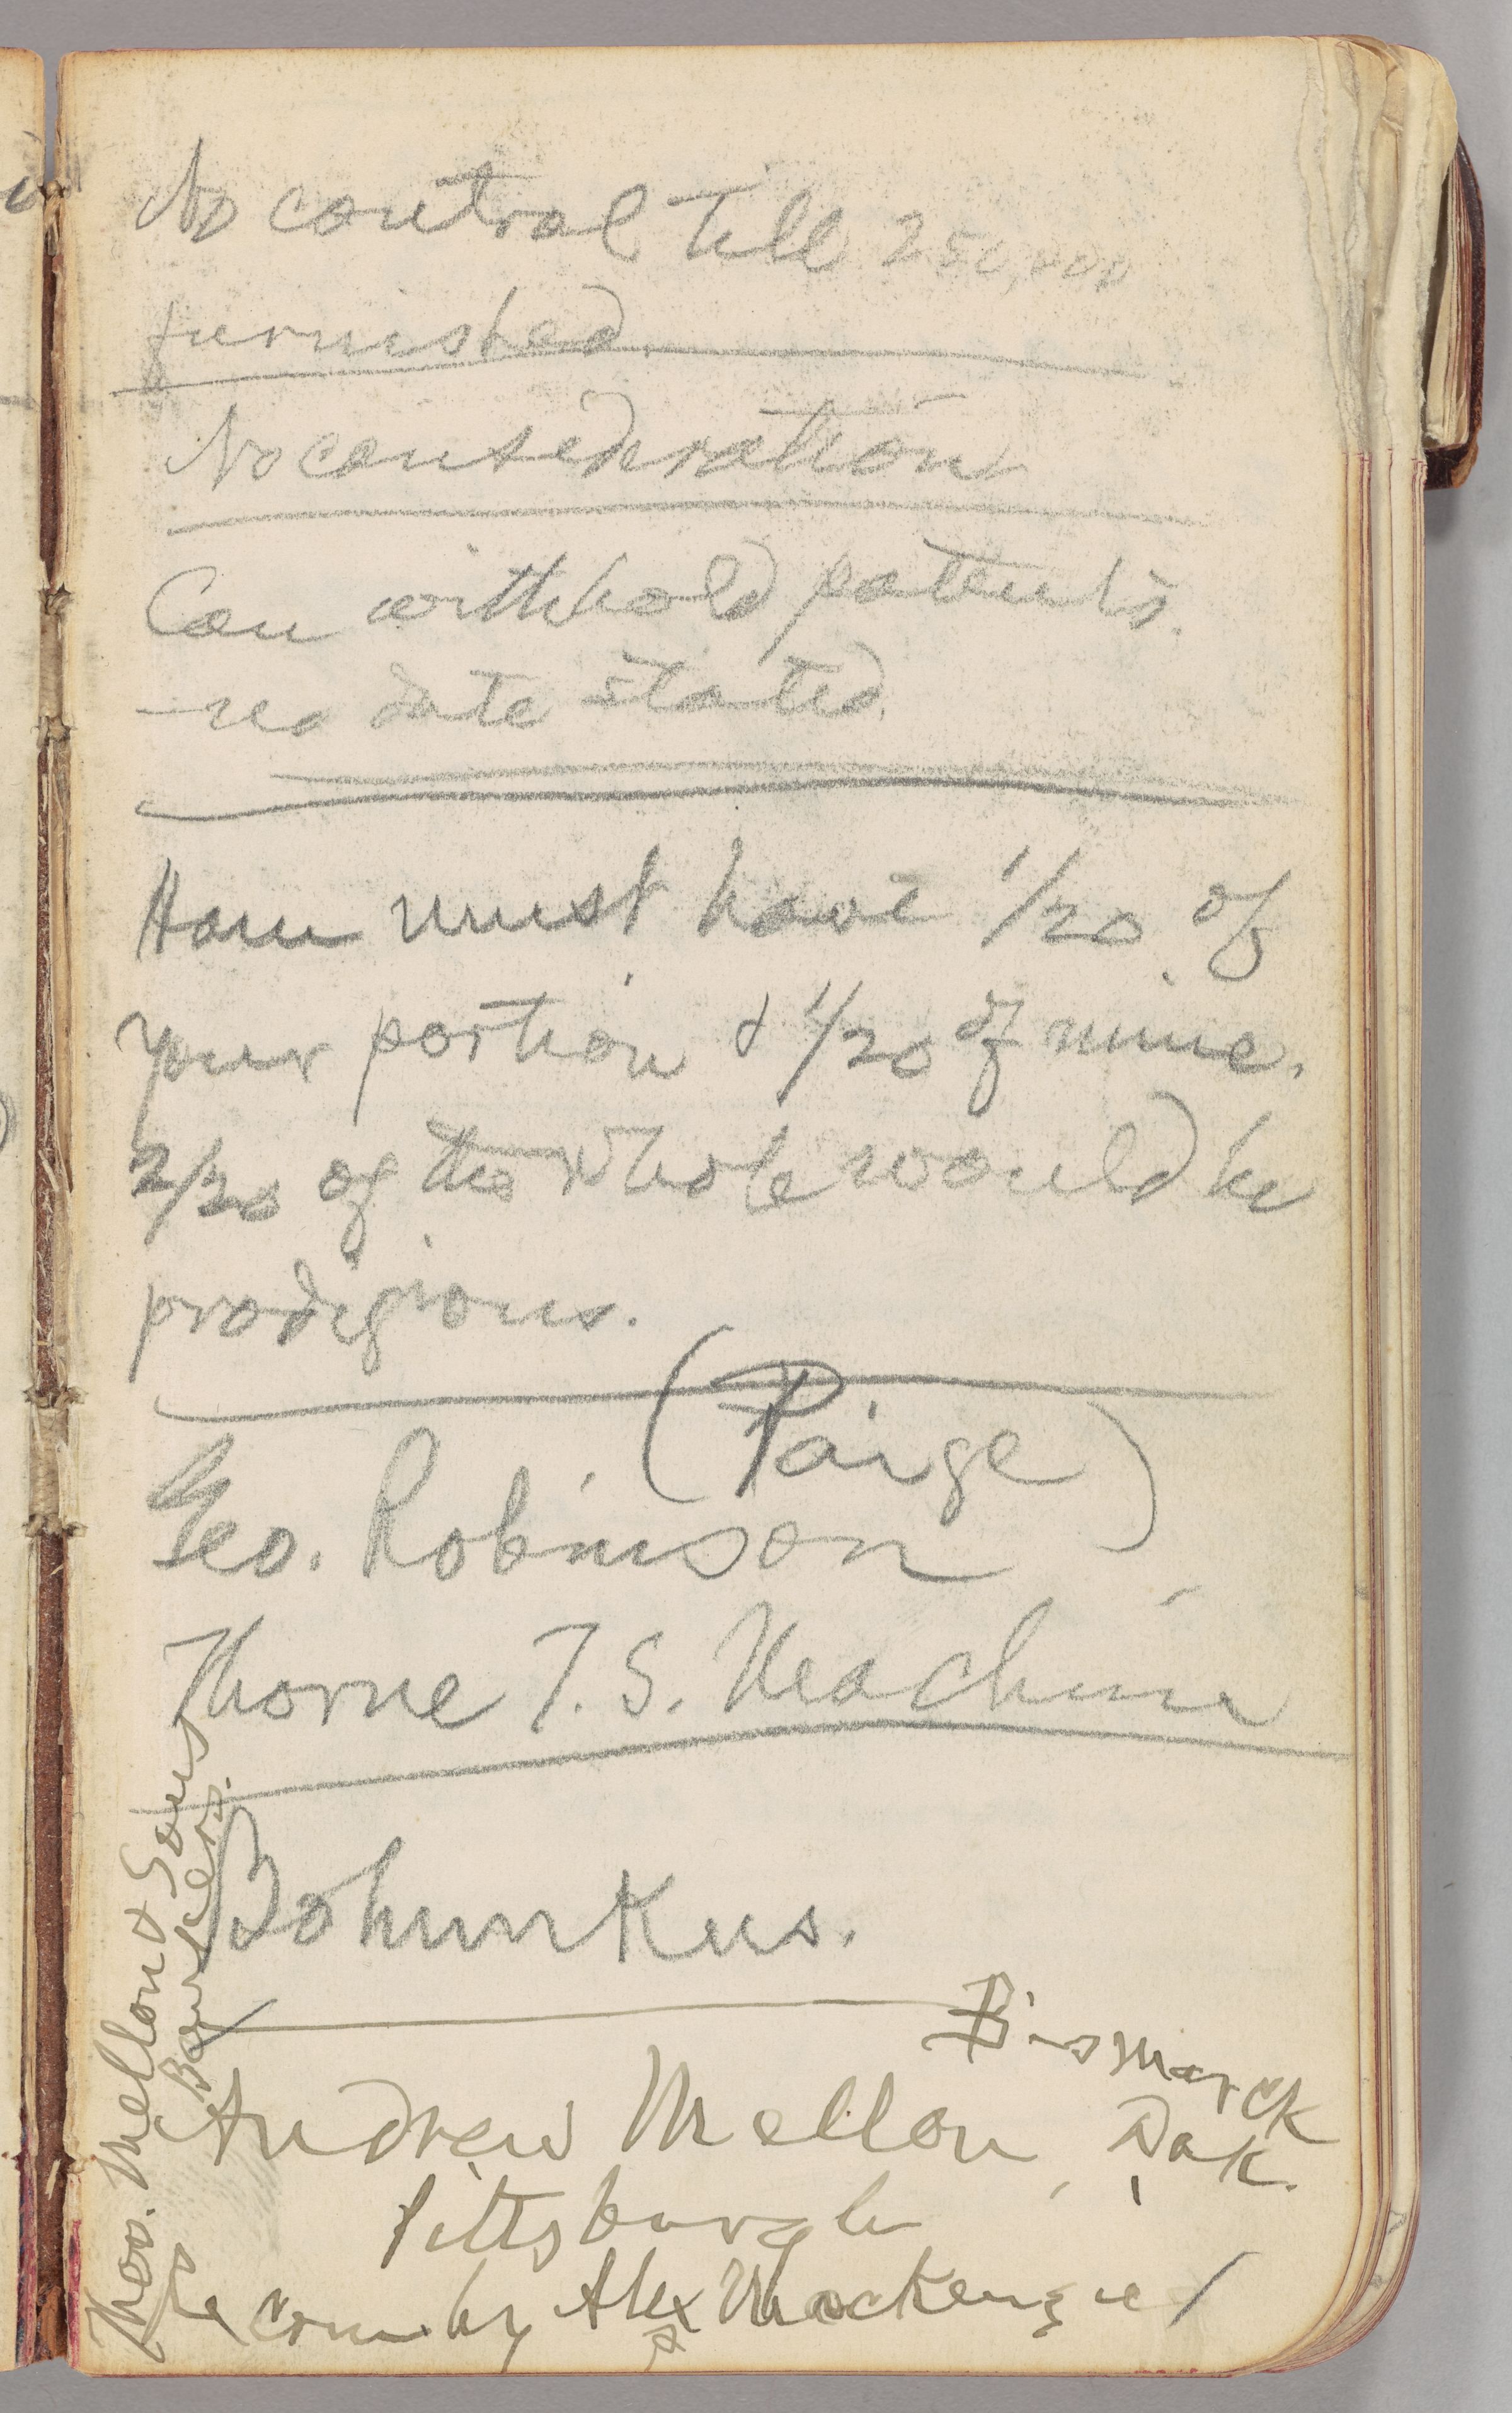 No control till 250,000
furnished.
No consideration
Can withhold patents.
— no date stated.
Ham must have 1/20 of
your portion & 1/20 of mine.
2/20 of the whole would be
prodigious.
(Paige)
Geo. Robinson
Thorne T. S. Machine
Bohunkus.
Andrew Mellon,
Pittsburgh
Recom. by Alex Mackenzie /
Bismarck
Dak.
Thos. Mellon & Sons
Bankers.